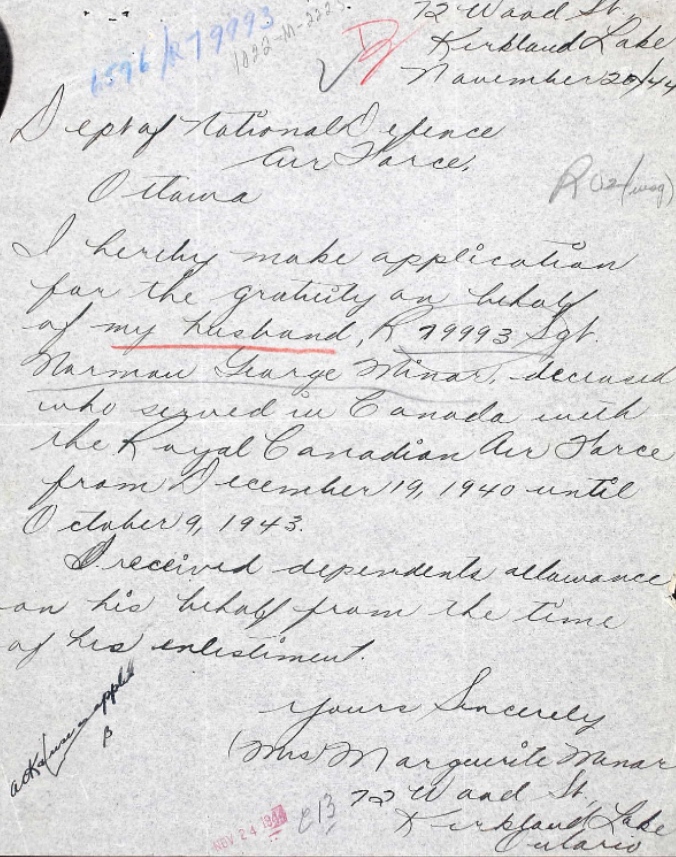 72 Wood St.
6596/R79993
1022-M-2223
Kirkland Lake
November 20/44
Dept of National Defence
Air Force,
Ottawa
R02
I hereby make application
for the gratuity on behalf
of my husband, R 79993 Sgt.
Norman George Minor, deceased
who served in Canada with
the Royal Canadian Air Force
from December 19, 1940 until
October 9, 1943.
I received dependents allowance
on his behalf from the time
of his enlistiment.
Yours Sincerely
(Mrs) Marguerite Minor
72 Wood St.,
Kirkland Lake
Ontario
NOV 24 1944